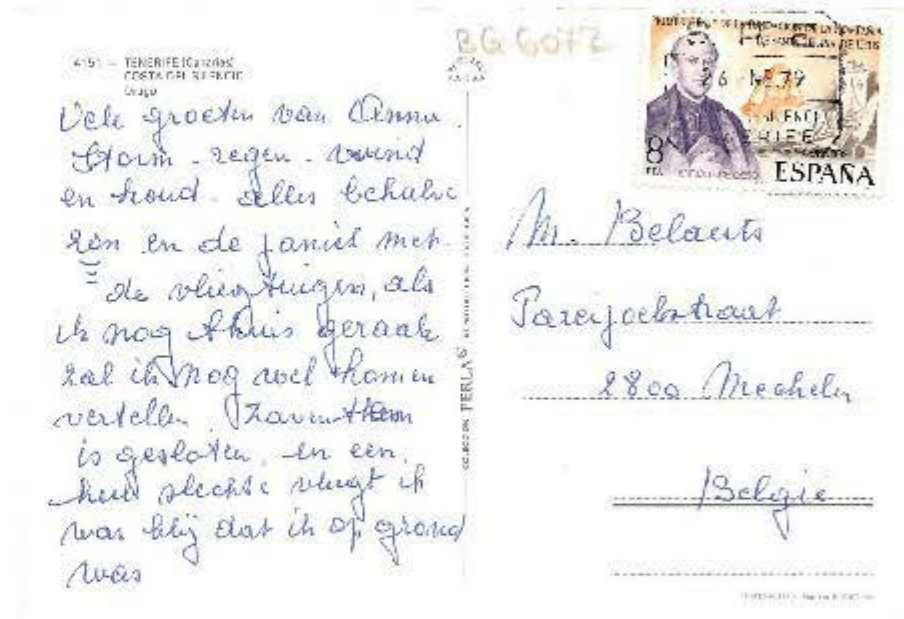 BG 6072
4151 - TENERIFE (Canarias)
COSTA DEL SILENCIO
Drago
Vele groeten van Anna.
Storm - regen - wind
en koud - alles behalve
zon en de paniek met
de vliegtuigen, als
ik nog thuis geraak
zal ik nog wel komen
vertellen. Zaventhem
is gesloten, en een
heel slechte vlugt ik
was blij dat ik op grond
was
COLECCION PERLA
26 79
8
PTA
ESPAÑA
M. Belaerts
2800 Mechelen
Belgie